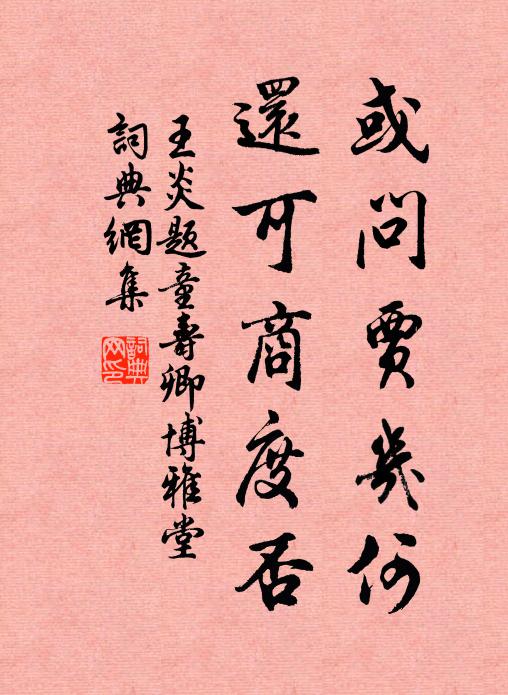 或問賈幾何
還可商度否
王炎題童壽卿博雅堂
詞典網集
詞典網印